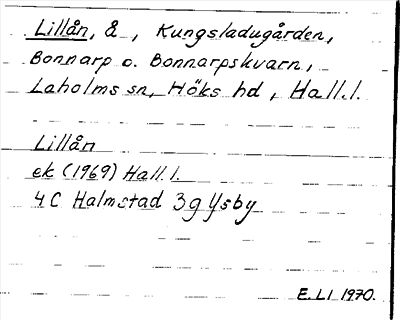 Lillån, å, Kungsladugården,
Bonnarp o. Bonnarpskvarn,
Laholms sn, Höks hd, Hall.l.
Lillån
ek (1969) Hall.l.
4C Halmstad 3g Ysby
E.LI 1970.